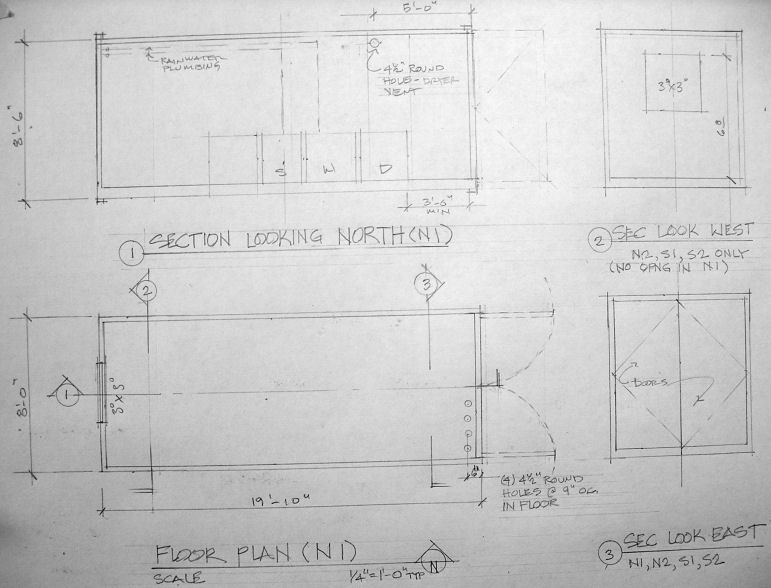 5'-0"
RAINWATER
PLUMBING
4½" ROUND
HOLE - DRYER
VENT
8'-6"
S
W
D
3'-6"
MIN
1
SECTION LOOKING NORTH (N1)
3⁰x3⁰
6⁸
2
SEC LOOK WEST
N2, S1, S2 ONLY
(NO OPNG IN N1)
2
3
8'-0"
1
3⁰x3⁰
6"
19'-10"
(4) 4½" ROUND
HOLES @ 9" OC.
IN FLOOR
DOORS
FLOOR PLAN (N1)
SCALE
1/4"=1'-0" TYP
N
3
SEC LOOK EAST
N1, N2, S1, S2